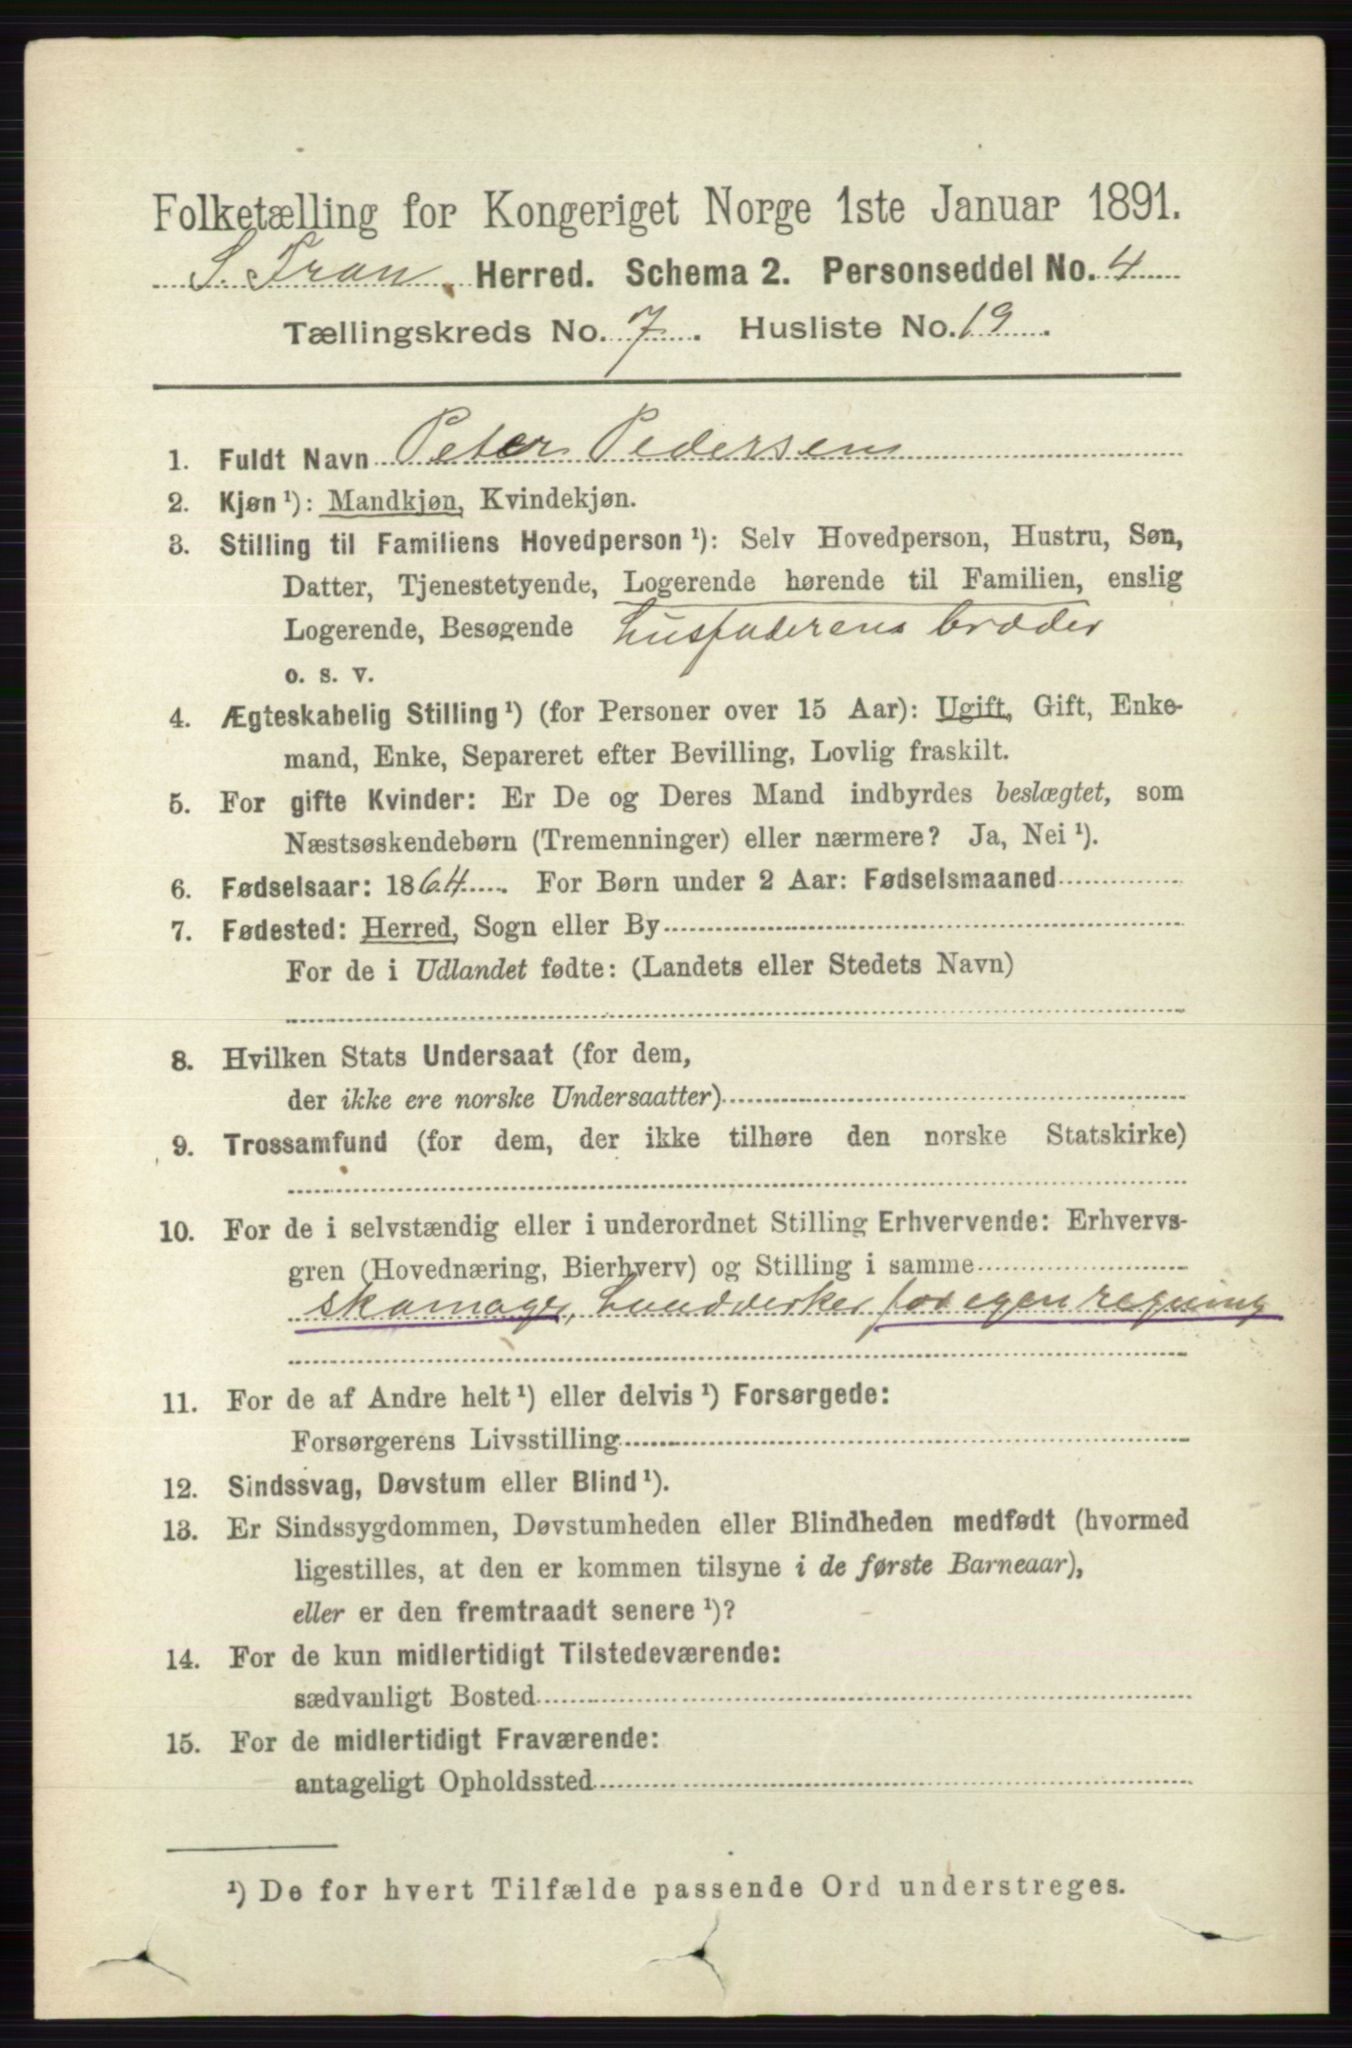 Folketælling for Kongeriget Norge 1ste Januar 1891.
S. Fron Herred. Schema 2. Personseddel No. 4
Tællingskreds No. 7. Husliste No. 19.
1. Fuldt Navn Peter Pedersen
2. Kjøn ¹): Mandkjøn, Kvindekjøn.
3. Stilling til Familiens Hovedperson ¹): Selv Hovedperson, Hustru, Søn,
Datter, Tjenestetyende, Logerende hørende til Familien, enslig
Logerende, Besøgende husfaderens broder
o. s. v.
4. Ægteskabelig Stilling ¹) (for Personer over 15 Aar): Ugift, Gift, Enke-
mand, Enke, Separeret efter Bevilling, Lovlig fraskilt.
5. For gifte Kvinder: Er De og Deres Mand indbyrdes beslægtet, som
Næstsøskendebørn (Tremenninger) eller nærmere? Ja, Nei ¹).
6. Fødselsaar: 1864. For Børn under 2 Aar: Fødselsmaaned
7. Fødested: Herred, Sogn eller By
For de i Udlandet fødte: (Landets eller Stedets Navn)
8. Hvilken Stats Undersaat (for dem,
der ikke ere norske Undersaatter)
9. Trossamfund (for dem, der ikke tilhøre den norske Statskirke)
10. For de i selvstændig eller i underordnet Stilling Erhvervende: Erhvervs-
gren (Hovednæring, Bierhverv) og Stilling i samme
skomager, haandverker for egen regning
11. For de af Andre helt ¹) eller delvis ¹) Forsørgede:
Forsørgerens Livsstilling
12. Sindssvag, Døvstum eller Blind ¹).
13. Er Sindssygdommen, Døvstumheden eller Blindheden medfødt (hvormed
ligestilles, at den er kommen tilsyne i de første Barneaar),
eller er den fremtraadt senere ¹)?
14. For de kun midlertidigt Tilstedeværende:
sædvanligt Bosted
15. For de midlertidigt Fraværende:
antageligt Opholdssted
¹) De for hvert Tilfælde passende Ord understreges.